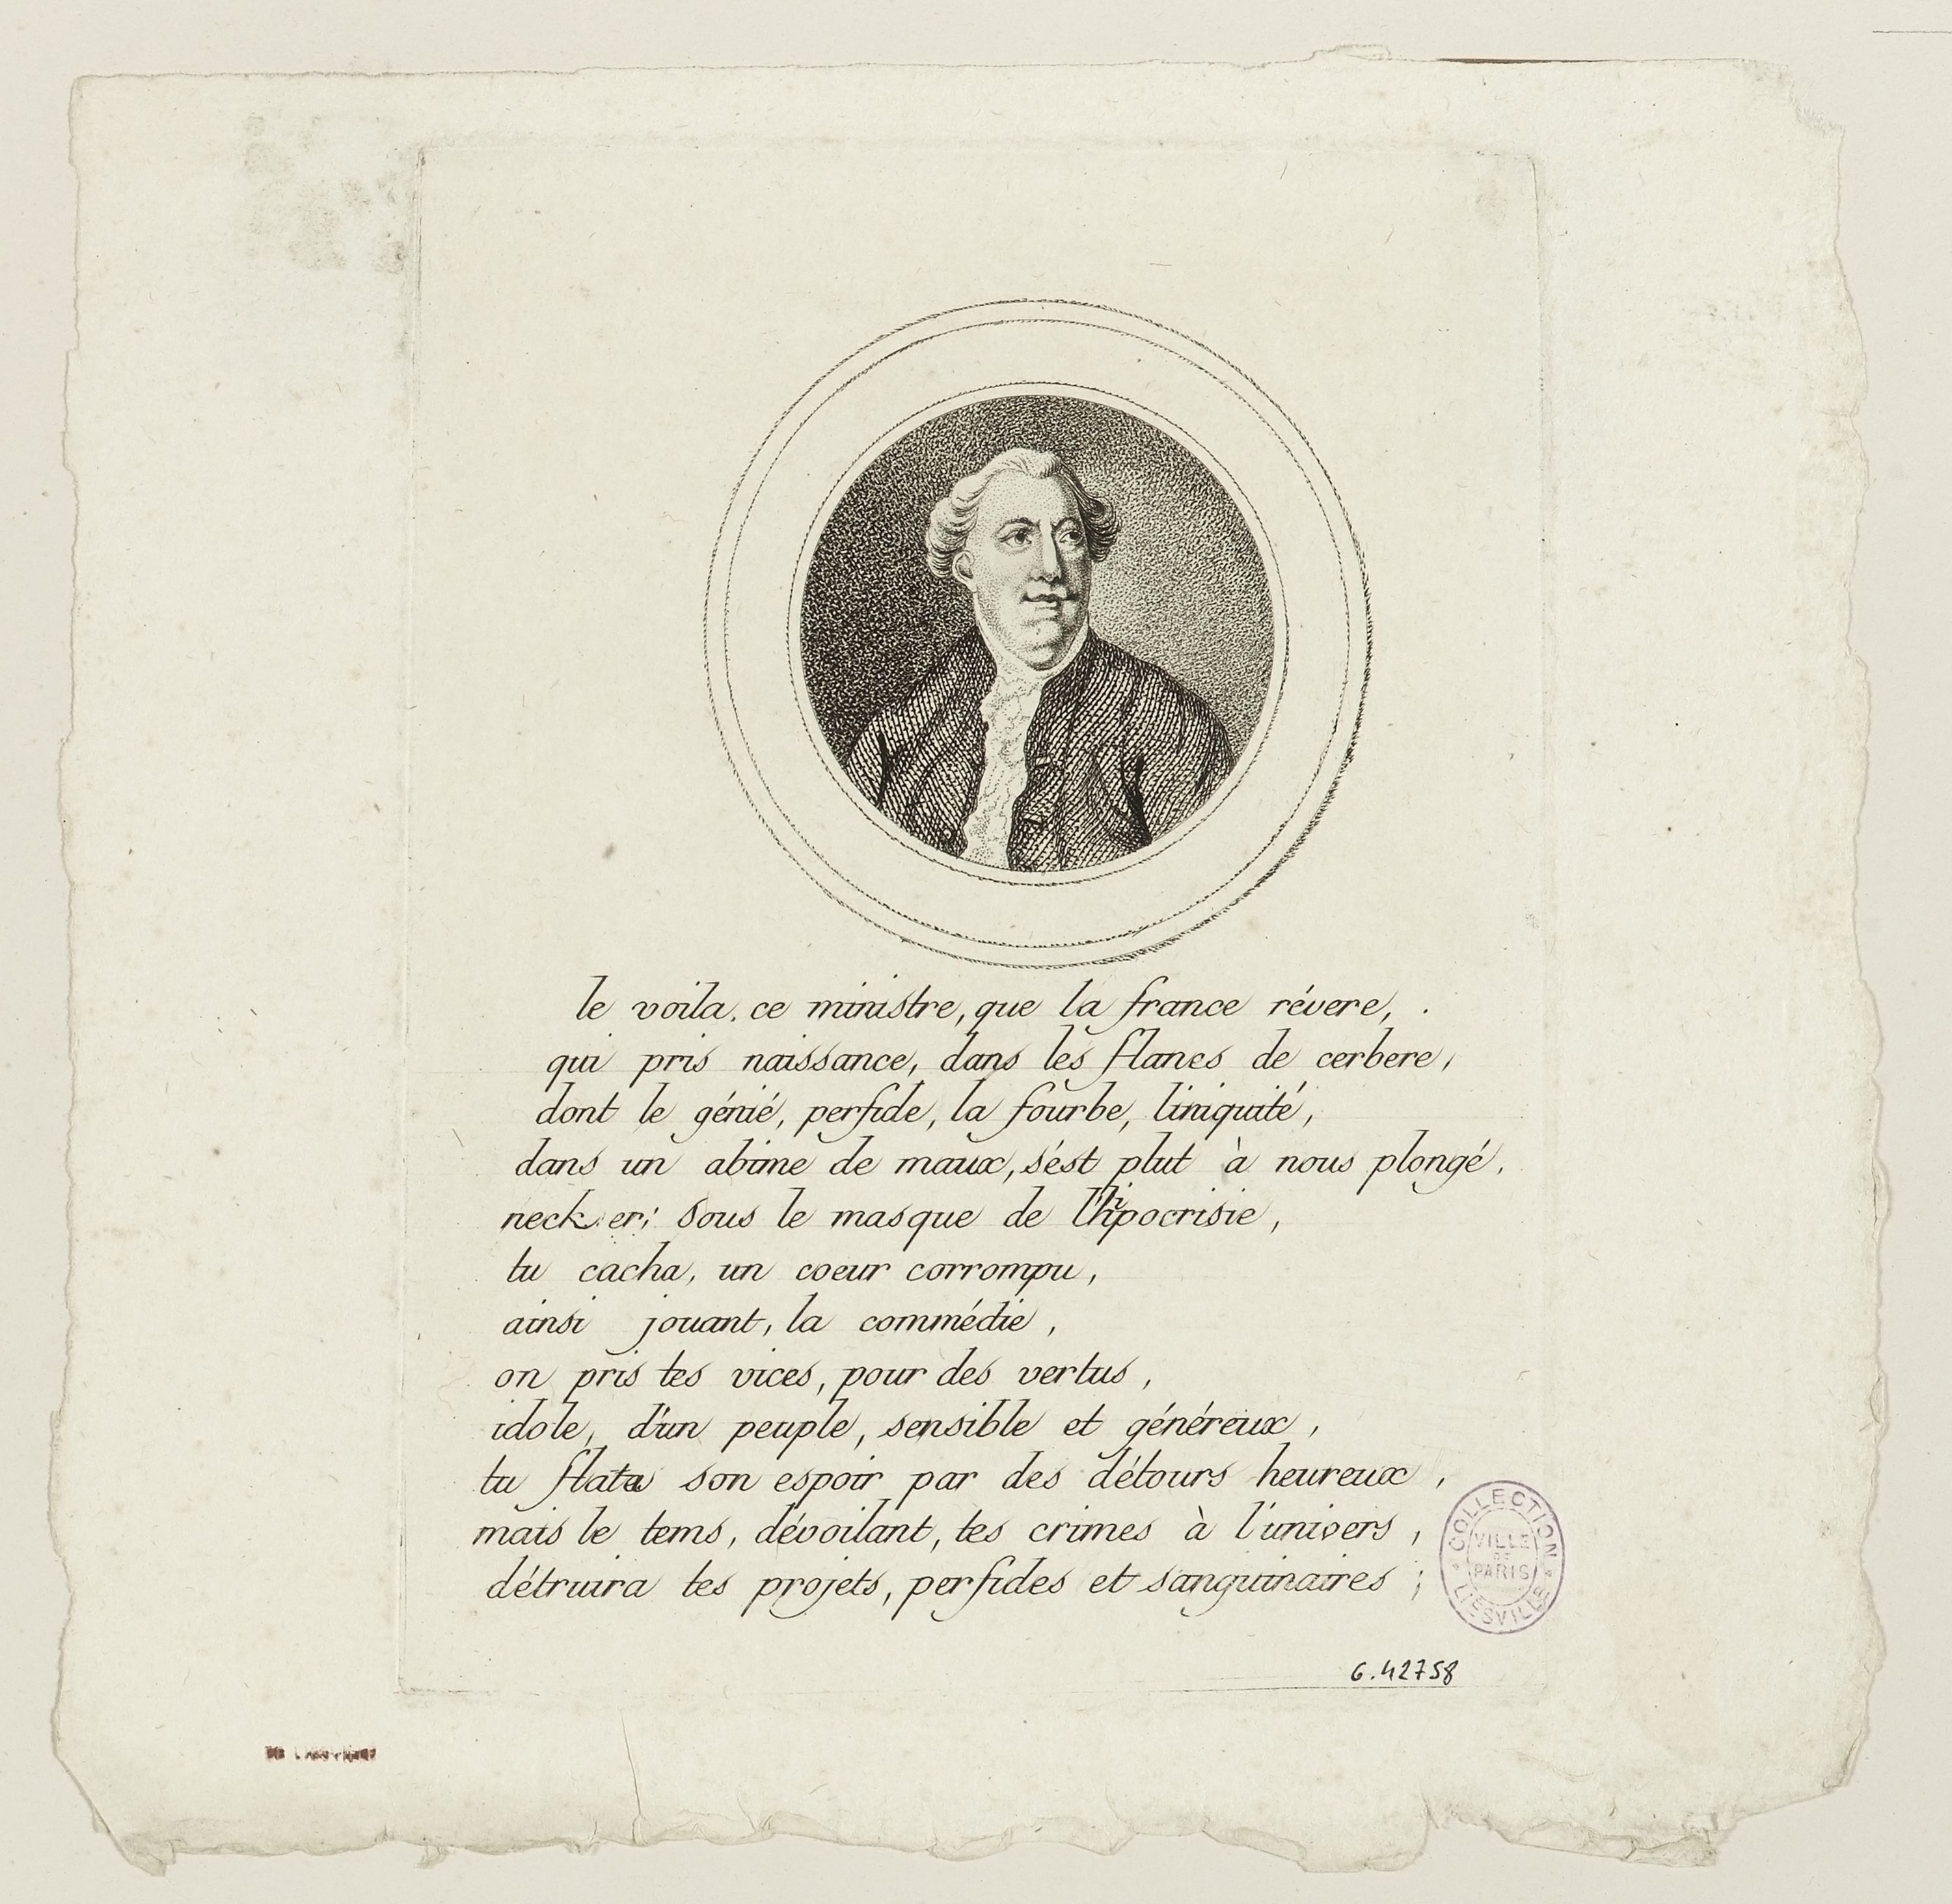 le voila. ce ministre, que la france révere, .
qui pris naissance, dans les flancs de cerbere,
dont le génié, perfide, la fourbe, l'iniquité,
dans un abime de maux, s'ést plut à nous plongé.
necker; sous le masque de l'hipocrisie,
tu cacha, un coeur corrompu,
ainsi jouant, la commédie,
on pris tes vices, pour des vertus,
idole, d'un peuple, sensible et généreux,
tu flata son espoir par des détours heureux,
mais le tems, dévoilant, tes crimes à l'univers,
détruira tes projets, perfides et sanguinaires;
COLLECTION
VILLE
DE
PARIS
LIESVILLE
G.42758